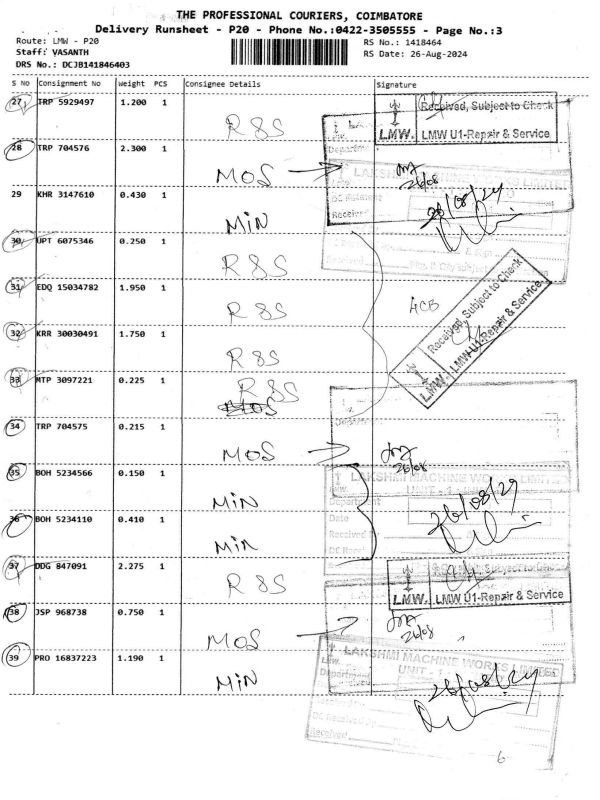 THE PROFESSIONAL COURIERS, COIMBATORE
Delivery Runsheet - P20 - Phone No.:0422-3505555 - Page No.:3
Route: LMW - P20
RS No.: 1418464
Staff: VASANTH
RS Date: 26-Aug-2024
DRS No.: DCJB141846403
S No Consignment No Weight PCS Consignee Details Signature
27 TRP 5929497 1.200 1 R&S
Received, Subject to Check
LMW. LMW U1-Repair & Service
28 TRP 704576 2.300 1 MOS
26/08
LAKSHMI MACHINE WORKS LIMITED
29 KHR 3147610 0.430 1 MIN
26/08/24
30 UPT 6075346 0.250 1 R&S
31 EDQ 15034782 1.950 1 R&S
ACB
Received, Subject to Check
LMW. LMW U1-Repair & Service
32 KRR 30030491 1.750 1 R&S
33 MTP 3097221 0.225 1 R&S
MOS
34 TRP 704575 0.215 1 MOS
26/08
LAKSHMI MACHINE WORKS LIMITED
35 BOH 5234566 0.150 1 MIN
Department
Date
26/08/24
36 BOH 5234110 0.410 1 MIN
37 DDG 847091 2.275 1 R&S
Subject to
LMW. LMW U1-Repair & Service
38 JSP 968738 0.750 1 MOS
26/08
LAKSHMI MACHINE WORKS LIMITED
39 PRO 16837223 1.190 1 MIN
Department
26/08/24
6